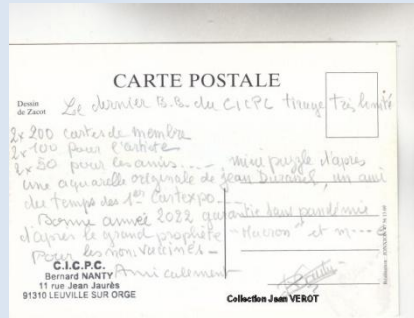 CARTE POSTALE
Dessin
de Zacot
Le dernier B.B. du CICPC tirage très limité
2x 200 cartes de membre
2x 100 pour l'artiste
2x 50 pour les amis.... mini puzzle d'après
une aquarelle originale de Jean Duranel, un ami
du temps des 1ers Cartexpo-
Bonne année 2022 garantie sans pandémie
d'après le grand prophète "Macron" et m---e
Pour les non vaccinés-
Amicalement
C.I.C.P.C.
Bernard NANTY
11 rue Jean Jaurès
91310 LEUVILLE SUR ORGE
Collection Jean VEROT